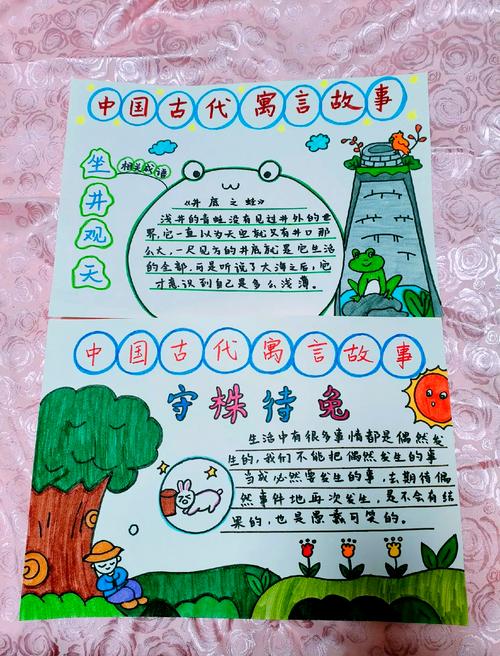 中国古代寓言故事
坐井观天
相关成语
《井底之蛙》
浅井的青蛙没有见过井外的世
界,它一直以为天空就只有井口那
么大,一尺见方的井底就是它生活
的全部,可是听说了大海之后,它
才意识到自己是多么浅薄。
中国古代寓言故事
守株待兔
生活中有很多事情都是偶然发
生的,我们不能把偶然发生的事
当成必然要发生的事,去期待偶
然事件地再次发生,是不会有结
果的,也是愚蠢可笑的。